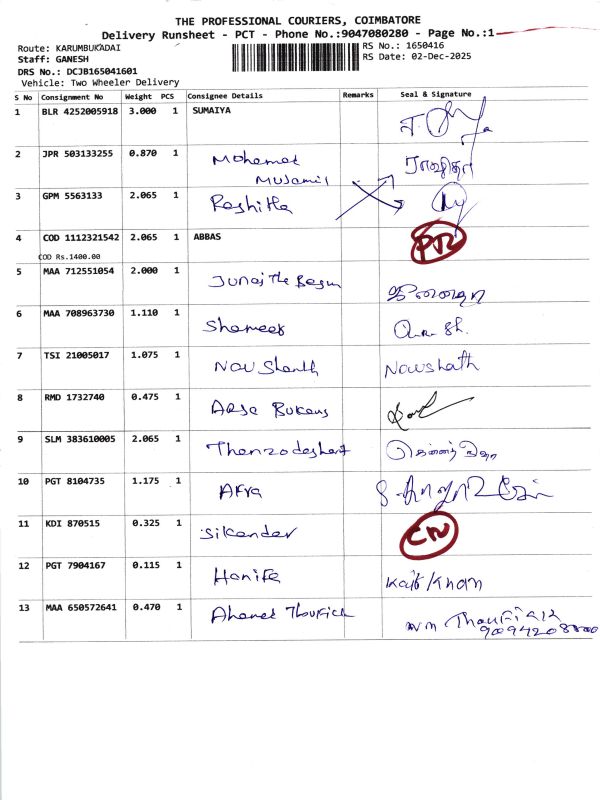 THE PROFESSIONAL COURIERS, COIMBATORE
Delivery Runsheet - PCT - Phone No.:9047080280 - Page No.:1
Route: KARUMBUKADAI
RS No.: 1650416
Staff: GANESH
RS Date: 02-Dec-2025
DRS No.: DCJB165041601
Vehicle: Two Wheeler Delivery
S No Consignment No Weight PCS Consignee Details Remarks Seal & Signature
1 BLR 4252005918 3.000 1 SUMAIYA
2 JPR 503133255 0.870 1 Mohamed
Mujamil
3 GPM 5563133 2.065 1 Rashitha
4 COD 1112321542 2.065 1 ABBAS
COD Rs.1400.00
5 MAA 712551054 2.000 1 Junaithe Begum
6 MAA 708963730 1.110 1 Shameer
7 TSI 21005017 1.075 1 Nowshath Nowshath
8 RMD 1732740 0.475 1
9 SLM 383610005 2.065 1
10 PGT 8104735 1.175 1 Afra
11 KDI 870515 0.325 1 Sikander
12 PGT 7904167 0.115 1 Hanifa
13 MAA 650572641 0.470 1 Ahamed Thoufick